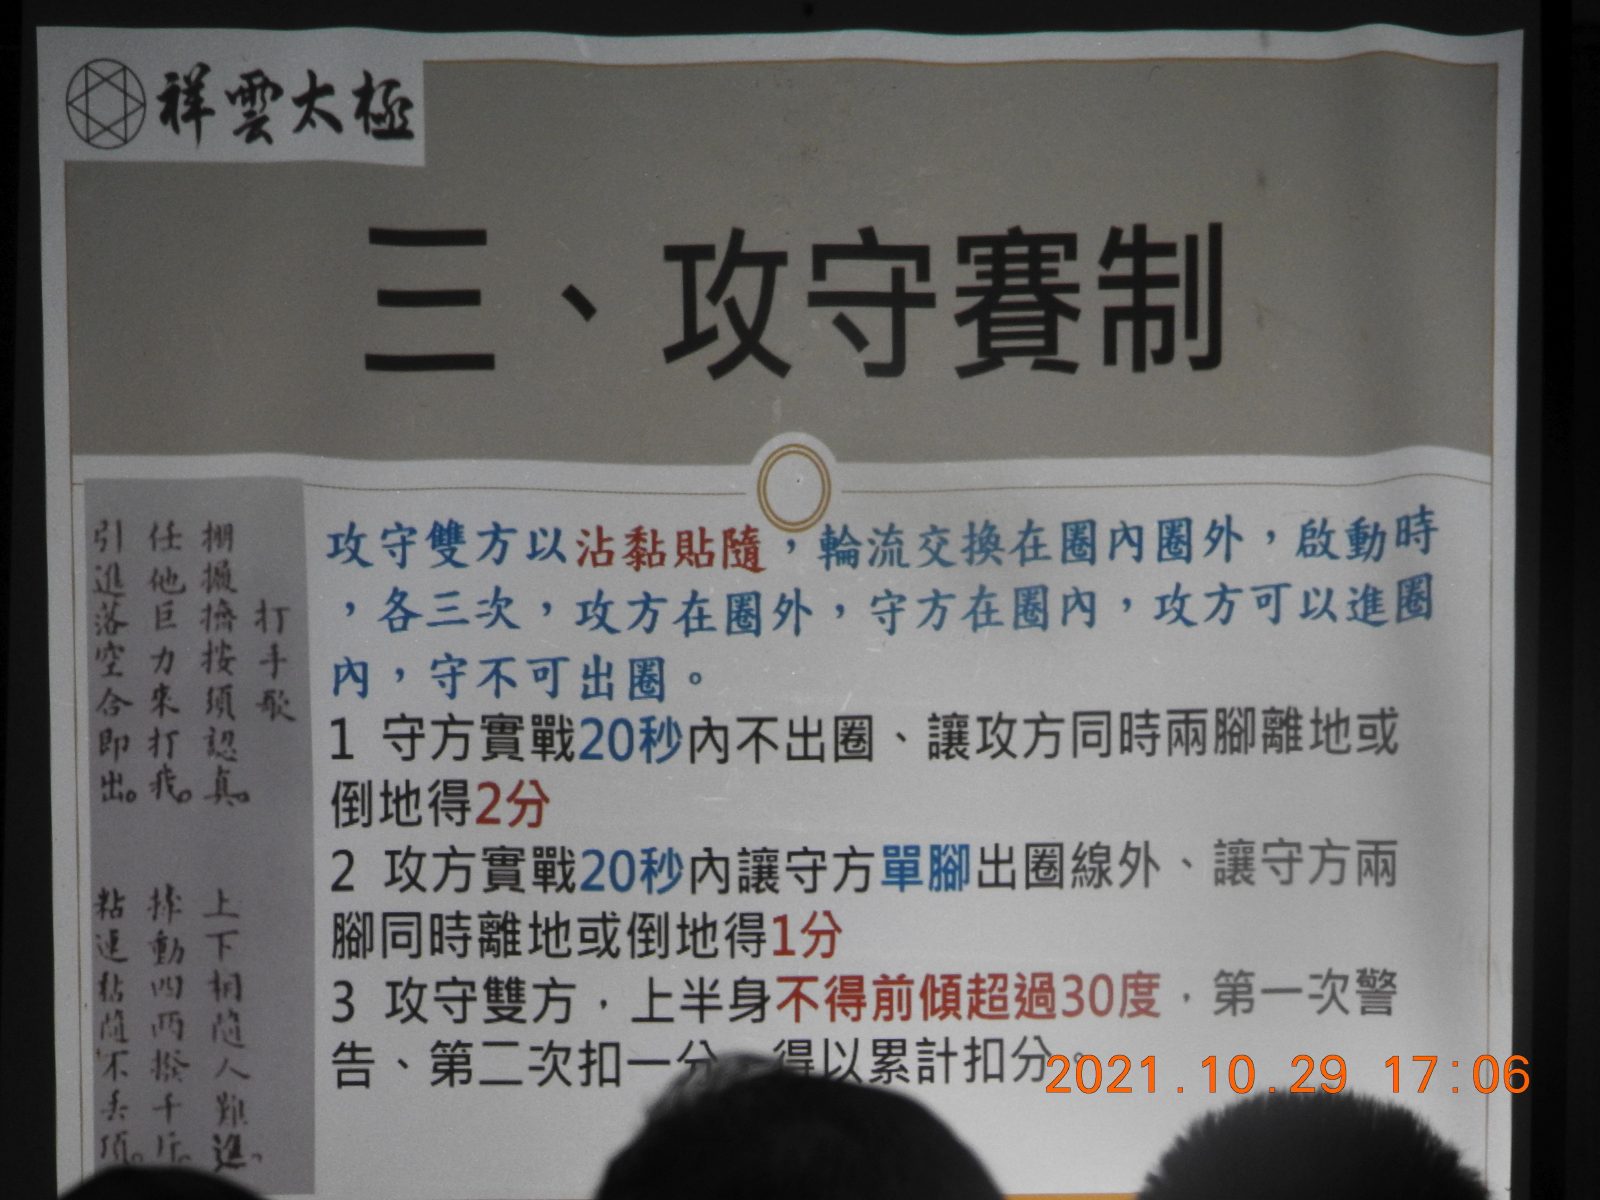 祥雲太極
三、攻守賽制
攻守雙方以沾黏貼隨，輪流交換在圈內圈外，啟動時
，各三次，攻方在圈外，守方在圈內，攻方可以進圈
內，守不可出圈。
1 守方實戰20秒內不出圈、讓攻方同時兩腳離地或
倒地得2分
2 攻方實戰20秒內讓守方單腳出圈線外、讓守方兩
腳同時離地或倒地得1分
3 攻守雙方，上半身不得前傾超過30度，第一次警
告、第二次扣一分，得以累計扣分。
打手歌
掤擠按須認真。
上下相隨人難進、
任他巨力來打我。
動四兩撥千斤。
引進落空合即出。
粘連黏隨不丟頂。
2021.10.29 17:06